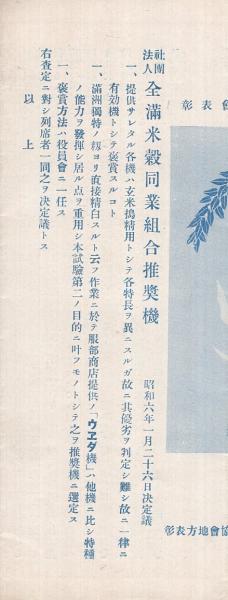 社團
法人 全滿米穀同業組合推奬機
昭和六年一月二十六日決定議
一、提供サレタル各機ハ玄米搗精用トシテ各特長ヲ異ニスルガ故ニ其優劣ヲ判定シ難シ故ニ一律ニ
有効機トシテ褒賞スルコト
一、滿洲獨特ノ籾ヨリ直接精白スルト云フ作業ニ於テ服部商店提供ノ「ウヱダ機」ハ他機ニ比シ特種
ノ能力ヲ發揮シ居ル点ヲ重用シ本試驗第二ノ目的ニ叶フモノトシテ之ヲ推奬機ニ選定ス
一、褒賞方法ハ役員會ニ一任ス
右査定ニ對シ列席者一同之ヲ決定議トス
以上
彰表會
彰表方地會協